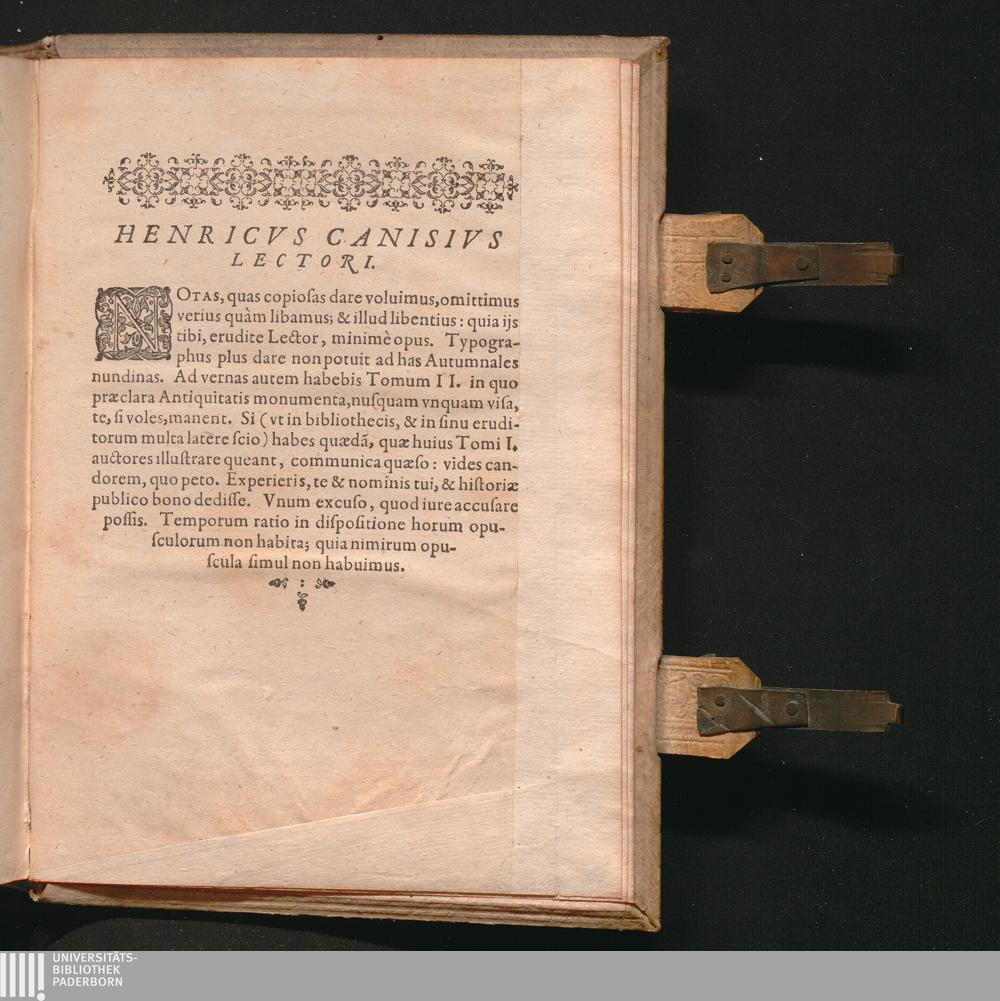 HENRICVS CANISIVS
LECTORI.
NOTAS, quas copioſas dare voluimus, omittimus
verius quàm libamus; & illud libentius: quia ijs
tibi, erudite Lector, minimè opus. Typogra-
phus plus dare non potuit ad has Autumnales
nundinas. Ad vernas autem habebis Tomum II. in quo
præclara Antiquitatis monumenta, nuſquam vnquam viſa,
te, ſi voles, manent. Si (vt in bibliothecis, & in ſinu erudi-
torum multa latere ſcio) habes quædã, quæ huius Tomi I.
auctores illuſtrare queant, communica quæſo: vides can-
dorem, quo peto. Experieris, te & nominis tui, & hiſtoriæ
publico bono dediſſe. Vnum excuſo, quod iure accuſare
poſſis. Temporum ratio in diſpoſitione horum opu-
ſculorum non habita; quia nimirum opu-
ſcula ſimul non habuimus.
UNIVERSITÄTS-
BIBLIOTHEK
PADERBORN